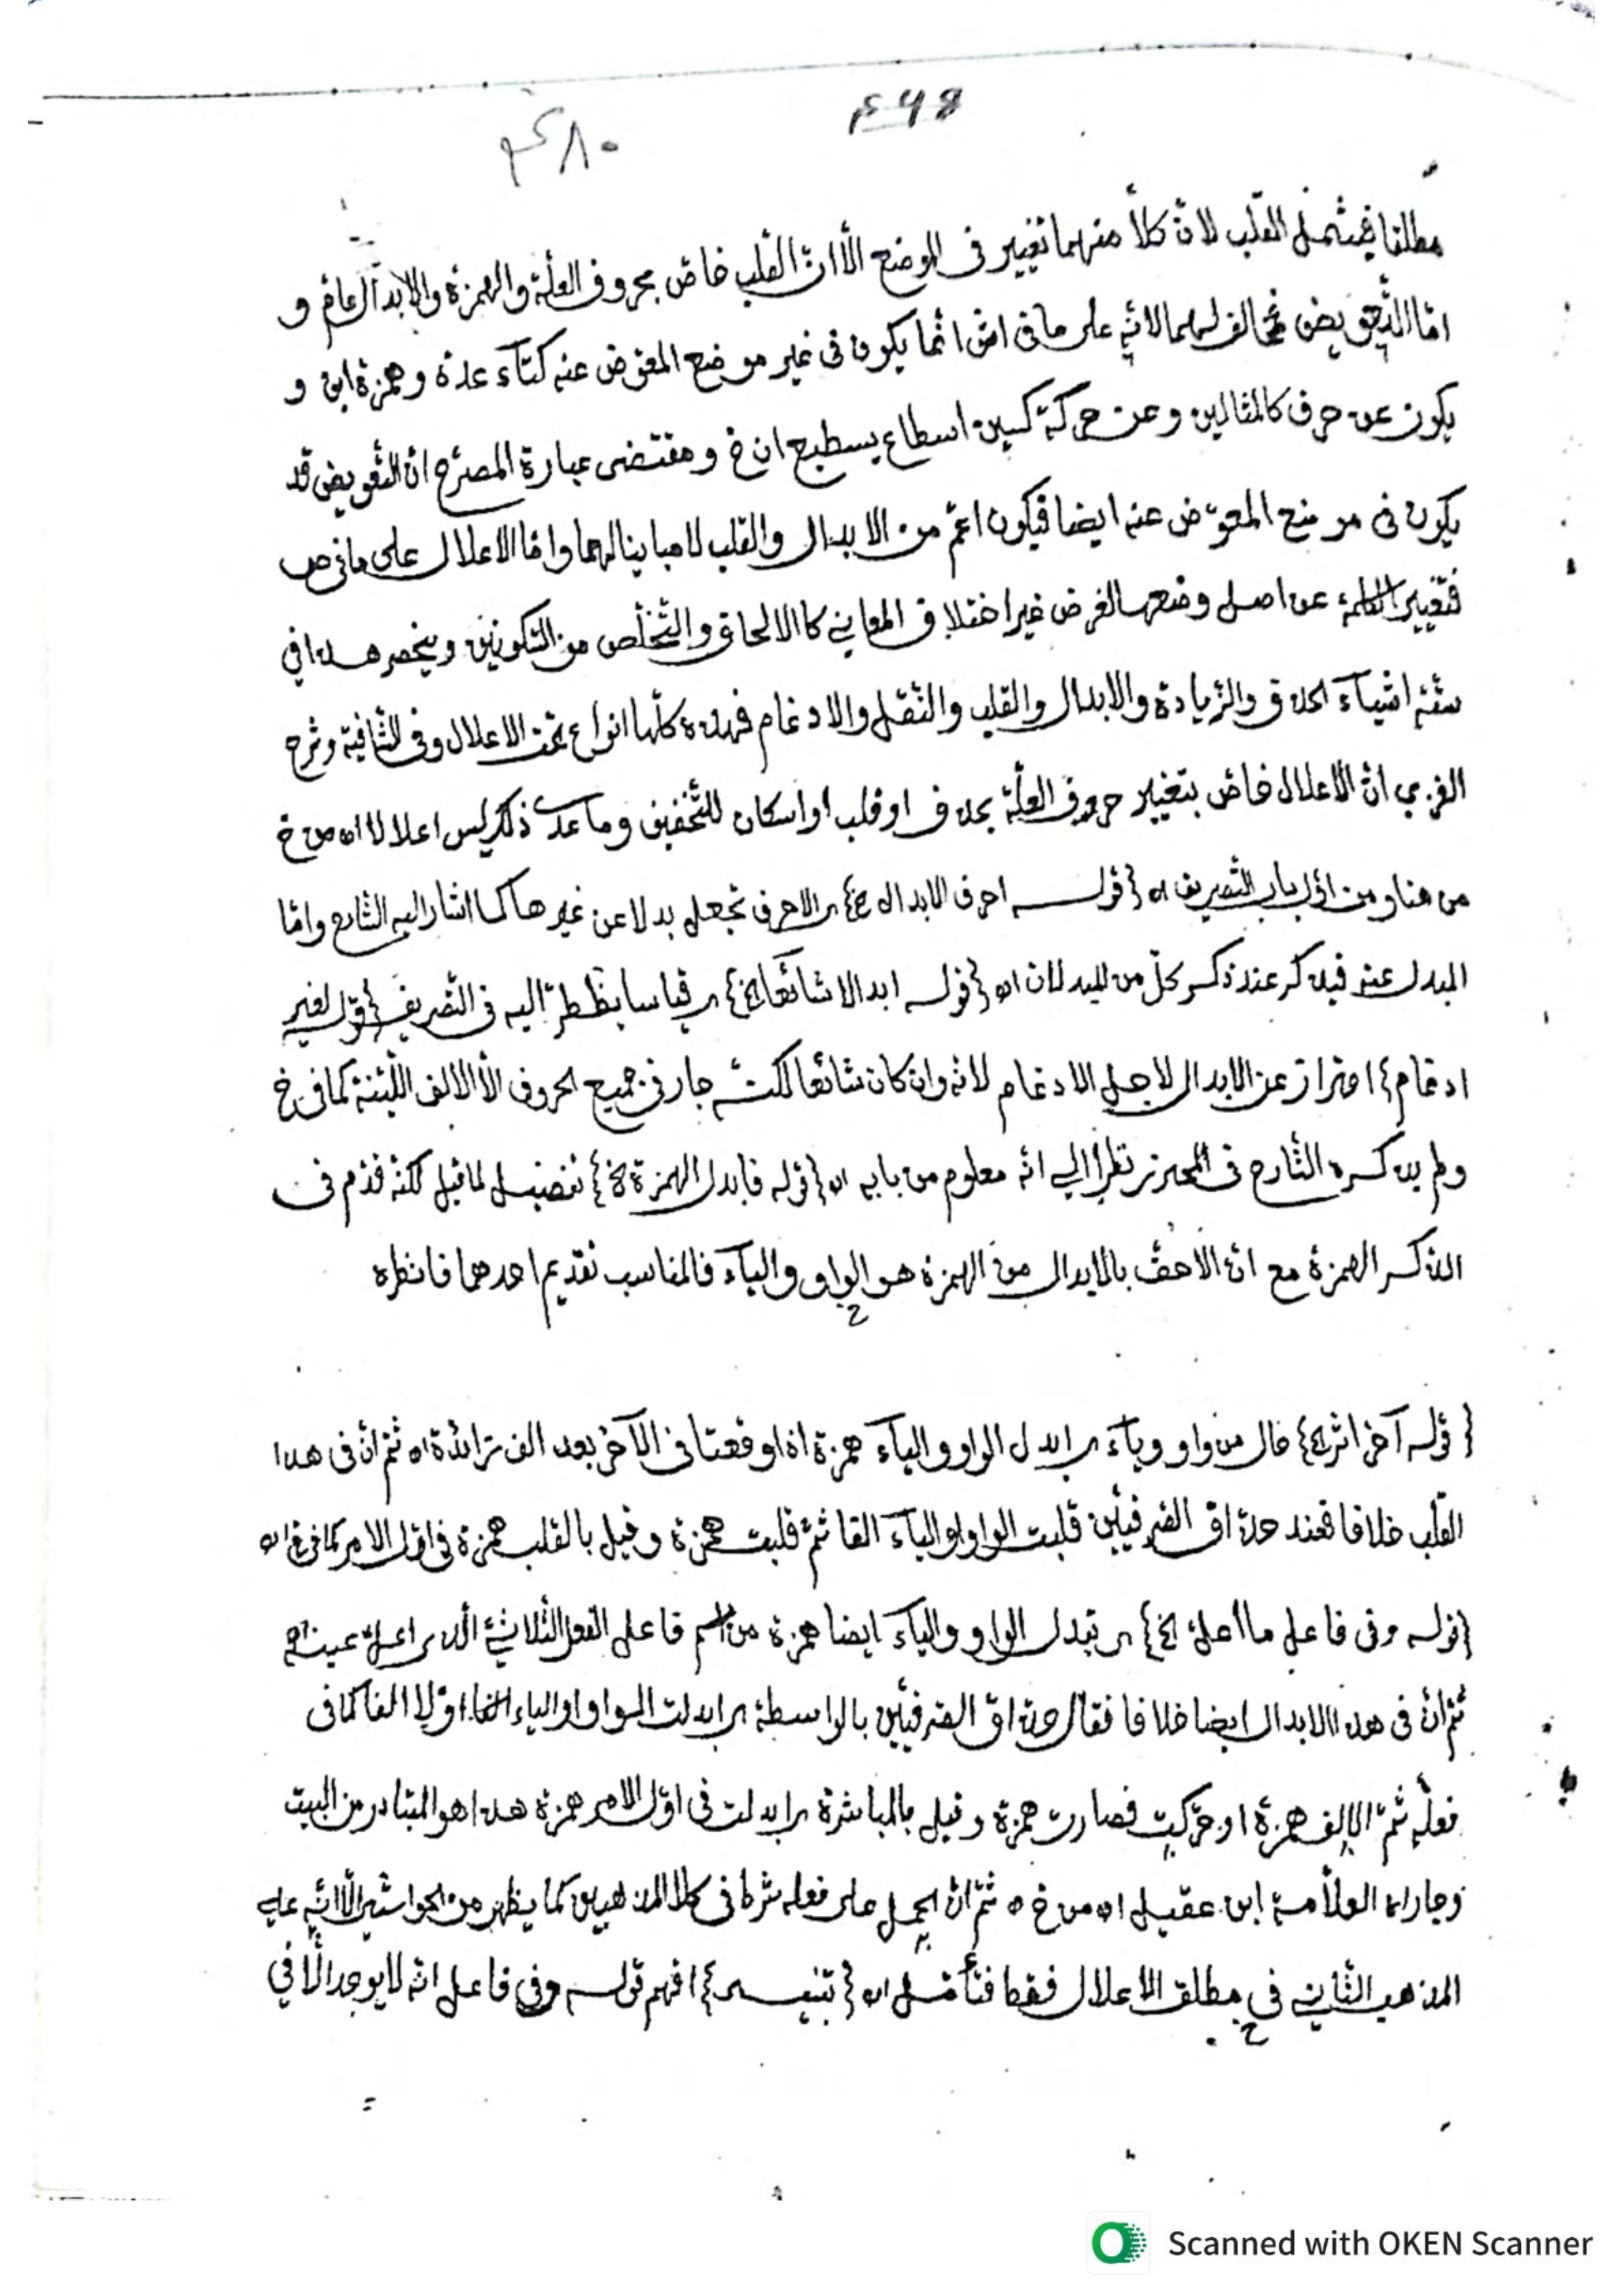 ٤٦٨
٤٨٠
مطلقا فيشمل القلب لانّ كلاّ منهما تغيير فى الموضع الاّ انّ القلب خاصّ بحروف العلّة والهمزة والابدال عامّ و
امّا التّعويض فمخالف لهما لانّه على ما فى اش انّما يكون فى غير موضع المعوّض عنه كتآء عدة وهمزة ابن و
يكون عن حرف كالمثالين وعن حركة كسين اسطاع يسطيع ان خ ومقتضى عبارة المصرّح انّ التّعويض قد
يكون فى موضع المعوّض عنه ايضا فيكون اعمّ من الابدال والقلب لا مباينا لهما وامّا الاعلال على ما فى ص
فتغيير الكلمة عن اصل وضعها لغرض غير اختلاف المعاني كالالحاق والتّخلّص من السّكونين وينحصر هذا فى
ستّة اشيآء الحذف والزّيادة والابدال والقلب والنّقل والادغام فهذه كلّها انواع تحت الاعلال وفى الشّافية وشرح
الغزي انّ الاعلال خاصّ بتغيير حروف العلّة بحذف او قلب او اسكان للتّخفيف وما عدا ذلك ليس اعلالا اه من خ
من هنا ومن اوّل باب التّصريف اه {قوله احرف الابدال الخ} اى الاحرف تجعل بدلا عن غيرها كما اشار اليه الشّارح وامّا
المبدل عنه فيذكر عند ذكر كلّ من المبدلات اه {قوله ابدالا شائعا الخ} اى قياسا يضطرّ اليه فى التّصريف {قوله لغير
ادغام} احتراز عن الابدال لاجل الادغام لانّه وان كان شائعا لكنّه جار فى جميع الحروف الاّ الالف اللّيّنة كما فى خ
ولم يذكره الشّارح فى المحترز نظرا الى انّه معلوم من بابه اه {قوله فابدل الهمزة الخ} تفصيل لما قبل لكنّه قدّم فى
الذّكر الهمزة مع انّ الاحقّ بالابدال من الهمزة هو الواو واليآء فالمناسب تقديم احدهما فانظره
{قوله آخرا اثر الخ} حال من واو ويآء اى ابدل الواو واليآء همزة اذا وقعتا فى الآخر بعد الف زائدة اه ثمّ انّ فى هذا
القلب خلافا فعند حذّاق الصّرفيّين قلبت الواو او اليآء الفا ثمّ قلبت همزة وقيل بالقلب همزة فى اوّل الامر كما فى خ اه
{قوله وفى فاعل ما اعلّ الخ} اى تبدل الواو واليآء ايضا همزة من اسم فاعل الفعل الثّلاثيّ الّذى اعلّ عينه اه
ثمّ انّ فى هذا الابدال ايضا خلافا فقال حذّاق الصّرفيّين بالواسطة اى ابدلت الواو او الياء اوّلا الفا كما فى
فعله ثمّ الالف همزة او حرّكت فصارت همزة وقيل بالمباشرة اى ابدلت فى اوّل الامر همزة هذا هو المتبادر من البيت
وجاراه العلاّمة ابن عقيل اه من خ ه ثمّ انّ الحمل على فعله شرط فى كلا المذهبين كما يظهر من الحواشي الاّ انّه على
المذهب الثّاني في مطلق الاعلال فقط فتأمّل اه {تنبيه} افهم قوله وفى فاعل انّه لا يوجد الاّ في
Scanned with OKEN Scanner